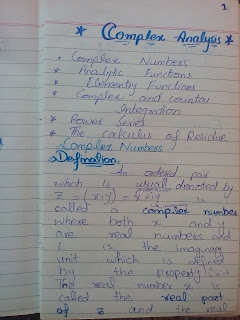 1
* Complex Analysis *
* Complex Numbers
* Analytic Functions
* Elementry Functions
* Complex and countou
Integration
* Power Series
* The calculus of Residue
Complex Numbers
Defination.
An ordered pair
which is usual denoted by
z = (x,y) = x+iy is
called complex number
where both x and y
are real numbers and
i is the imaginary
unit which is defined
by the property i² = -1
The real number x is
called the real part
of z and the real